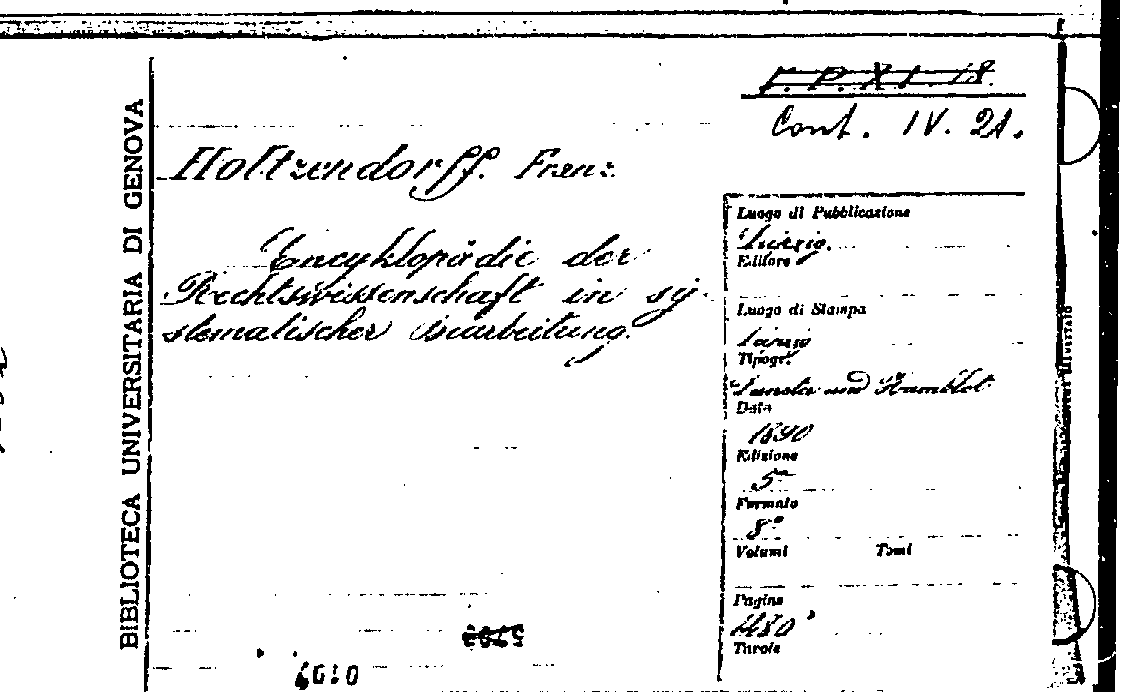 BIBLIOTECA UNIVERSITARIA DI GENOVA
V. P. XI. 18.
Cont. IV. 21.
Holtzendorff. Franz.
Encyklopädie der
Rechtswissenschaft in sy-
stematischer Bearbeitung.
Luogo di Pubblicazione
Leipzig.
Editore
Luogo di Stampa
Leipzig
Tipogr.
und Humblot
Data
1890
Edizione
5ª
Formato
8°
Volumi Tomi
Pagine
Tavole